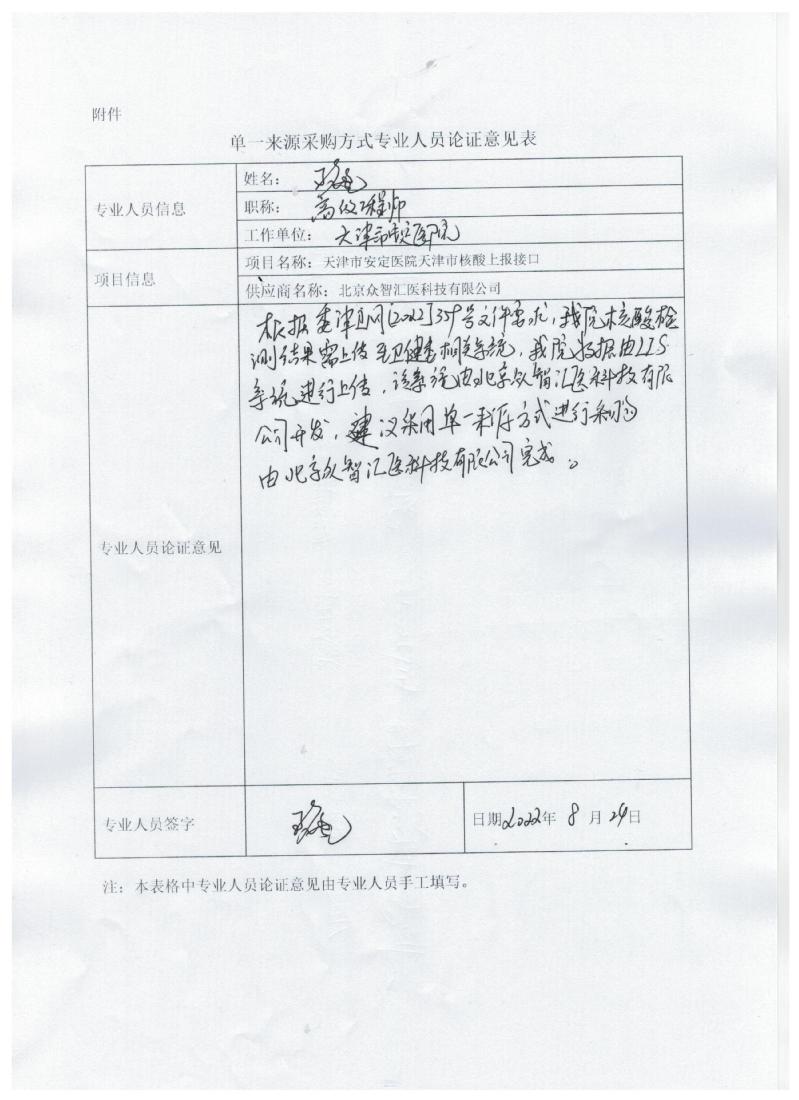 附件
单一来源采购方式专业人员论证意见表
专业人员信息
姓名：
职称： 高级工程师
工作单位： 天津市安定医院
项目信息
项目名称：天津市安定医院天津市核酸上报接口
供应商名称：北京众智汇医科技有限公司
根据 津卫网[2022]359号文件要求，我院核酸检
测结果需上传至卫健委相关系统，我院数据由LIS
系统进行上传，该系统由北京众智汇医科技有限
公司开发，建议采用单一来源方式进行采购
由北京众智汇医科技有限公司完成。
专业人员论证意见
专业人员签字
日期2022年 8 月 29日
注：本表格中专业人员论证意见由专业人员手工填写。